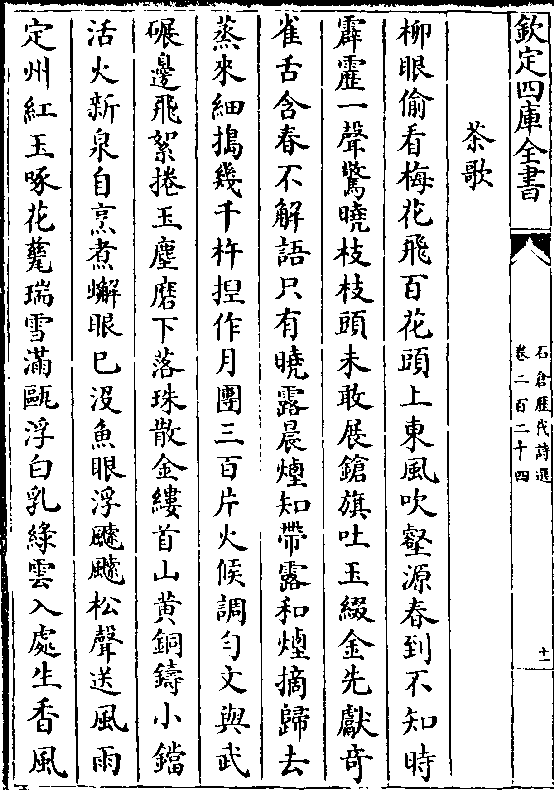 欽定四庫全書
石倉歷代詩選
卷二百二十四
十一
茶歌
柳眼偷看梅花飛百花頭上東風吹壑源春到不知時
霹靂一聲驚曉枝枝頭未敢展鎗旗吐玉綴金先獻竒
雀舌含春不解語只有曉露晨煙知帶露和煙摘歸去
蒸來細搗幾千杵揑作月團三百片火候調勻文與武
碾邊飛絮捲玉塵磨下落珠散金縷首山黄銅鑄小鐺
活火新泉自烹煮蠏眼已沒魚眼浮飀飀松聲送風雨
定州紅玉琢花甆瑞雪滿甌浮白乳緑雲入處生香風